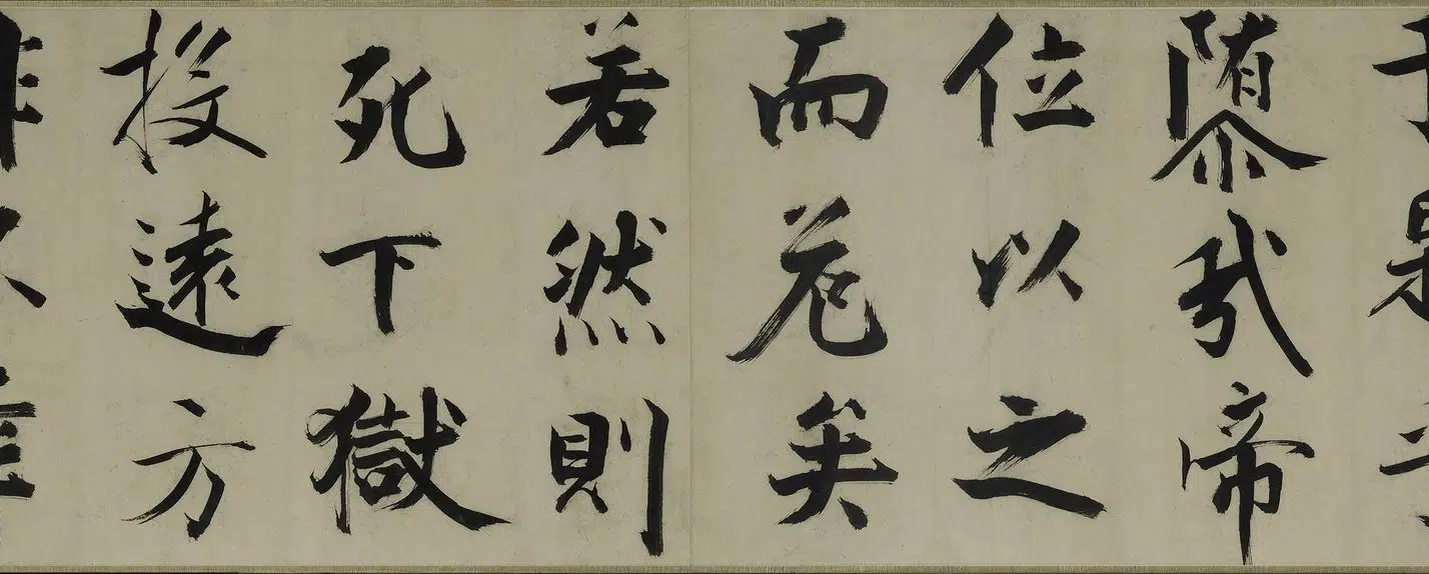 隳我帝
位以之
而危矣
若然則
死下獄
投遠方